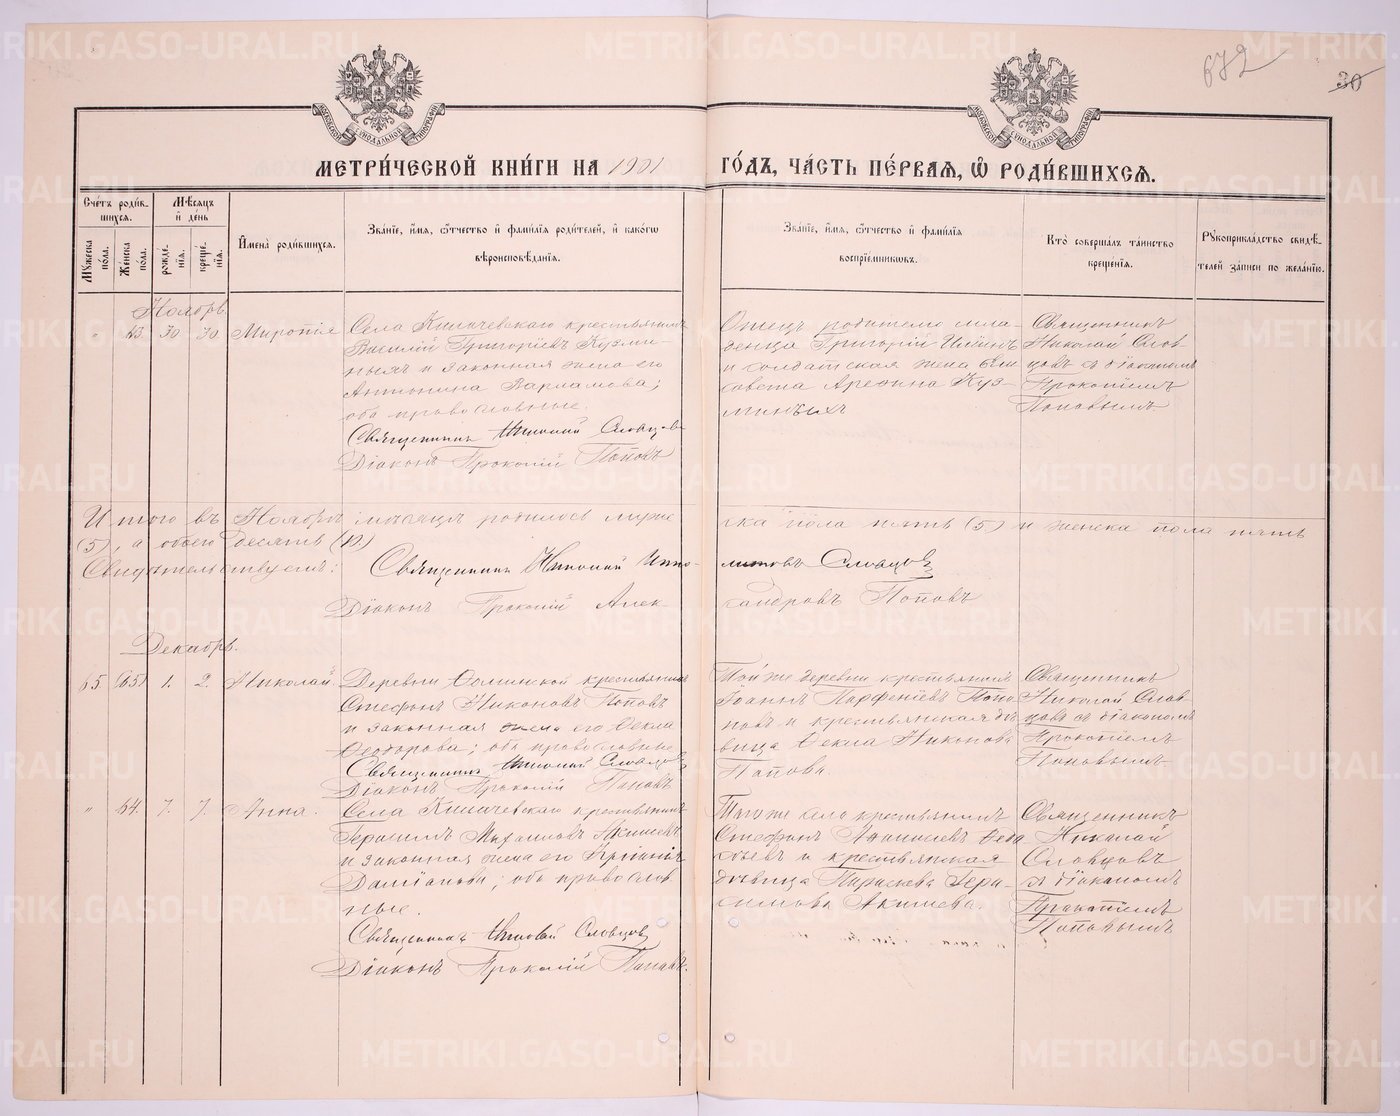 672
30
МЕТРИ́ЧЕСКОЙ КНИ́ГИ НА 1901 ГО́ДЪ, ЧА́СТЬ ПЕ́РВАЯ, Ѡ҆ РОДИ́ВШИХСѦ.
Сче́тъ роди́в-
шихся.
Мѣсяцъ
и҆ де́нь
Мꙋ́жеска по́ла.
Же́нска по́ла.
рожде́-
нїя.
креще́-
нїя.
И҆мена̀ роди́вшихся.
Зва́нїе, и҆́мя, ѻ҆́тчество и҆ фами́лїя роди́телей, и҆ како́гѡ
вѣроисповѣ́данїя.
Зва́нїе, и҆́мя, ѻ҆́тчество и҆ фами́лїя
воспрїе́мниковъ.
Кто̀ соверша́лъ та́инство
креще́нїя.
Рꙋкоприкла́дство свидѣ́-
телей за́писи по жела́нїю.
Ноябрь.
" 63. 30 30.
Села Киргачевскаго крестьянинъ
Василій Григоріевъ Кузми-
ныхъ и законная жена его
Антонина Варламова;
оба православные.
Священникъ Николай Словцовъ
Діаконъ Прокопій Поповъ
Отецъ родителю мла-
денца Григорій
и солдатская жена Ели-
савета Куз-
миныхъ
Священникъ
Николай Слов-
цовъ съ діакономъ
Прокопіемъ
Поповымъ
Итого въ Ноябрѣ мѣсяцѣ родилось муже-
ска пола пять (5) и женска пола пять
(5), а обоего десять (10.)
Свидѣтельствуемъ: Священникъ Николай Иппо-
литовъ Словцовъ
Діаконъ Прокопій Алек-
сандровъ Поповъ
Декабрь.
65 (65) 1. 2. Николай.
Деревни крестьянинъ
Стефанъ Никоновъ Поповъ
и законная жена его Ѳекла
Ѳеодорова; оба православные
Священникъ Николай Словцовъ
Діаконъ Прокопій Поповъ
Той же деревни крестьянинъ
Іоаннъ Парѳеніевъ Попо-
новъ и крестьянская дѣ-
вица Ѳекла Никонова
Попова.
Священникъ
Николай Слов-
цовъ съ діакономъ
Прокопіемъ
Поповымъ
" 64. 7. 7. Анна.
Села крестьянинъ
Герасимъ Михаиловъ Акишевъ
и законная жена его
Даміанова; оба православ-
ные.
Священникъ Николай Словцовъ
Діаконъ Прокопій Поповъ.
Того же села крестьянинъ
Стефанъ Аѳанасіевъ
и крестьянская
дѣвица Параскева Гера-
симова Акишева.
Священникъ
Николай
Словцовъ
съ діакономъ
Прокопіемъ
Поповымъ
METRIKI.GASO-URAL.RU